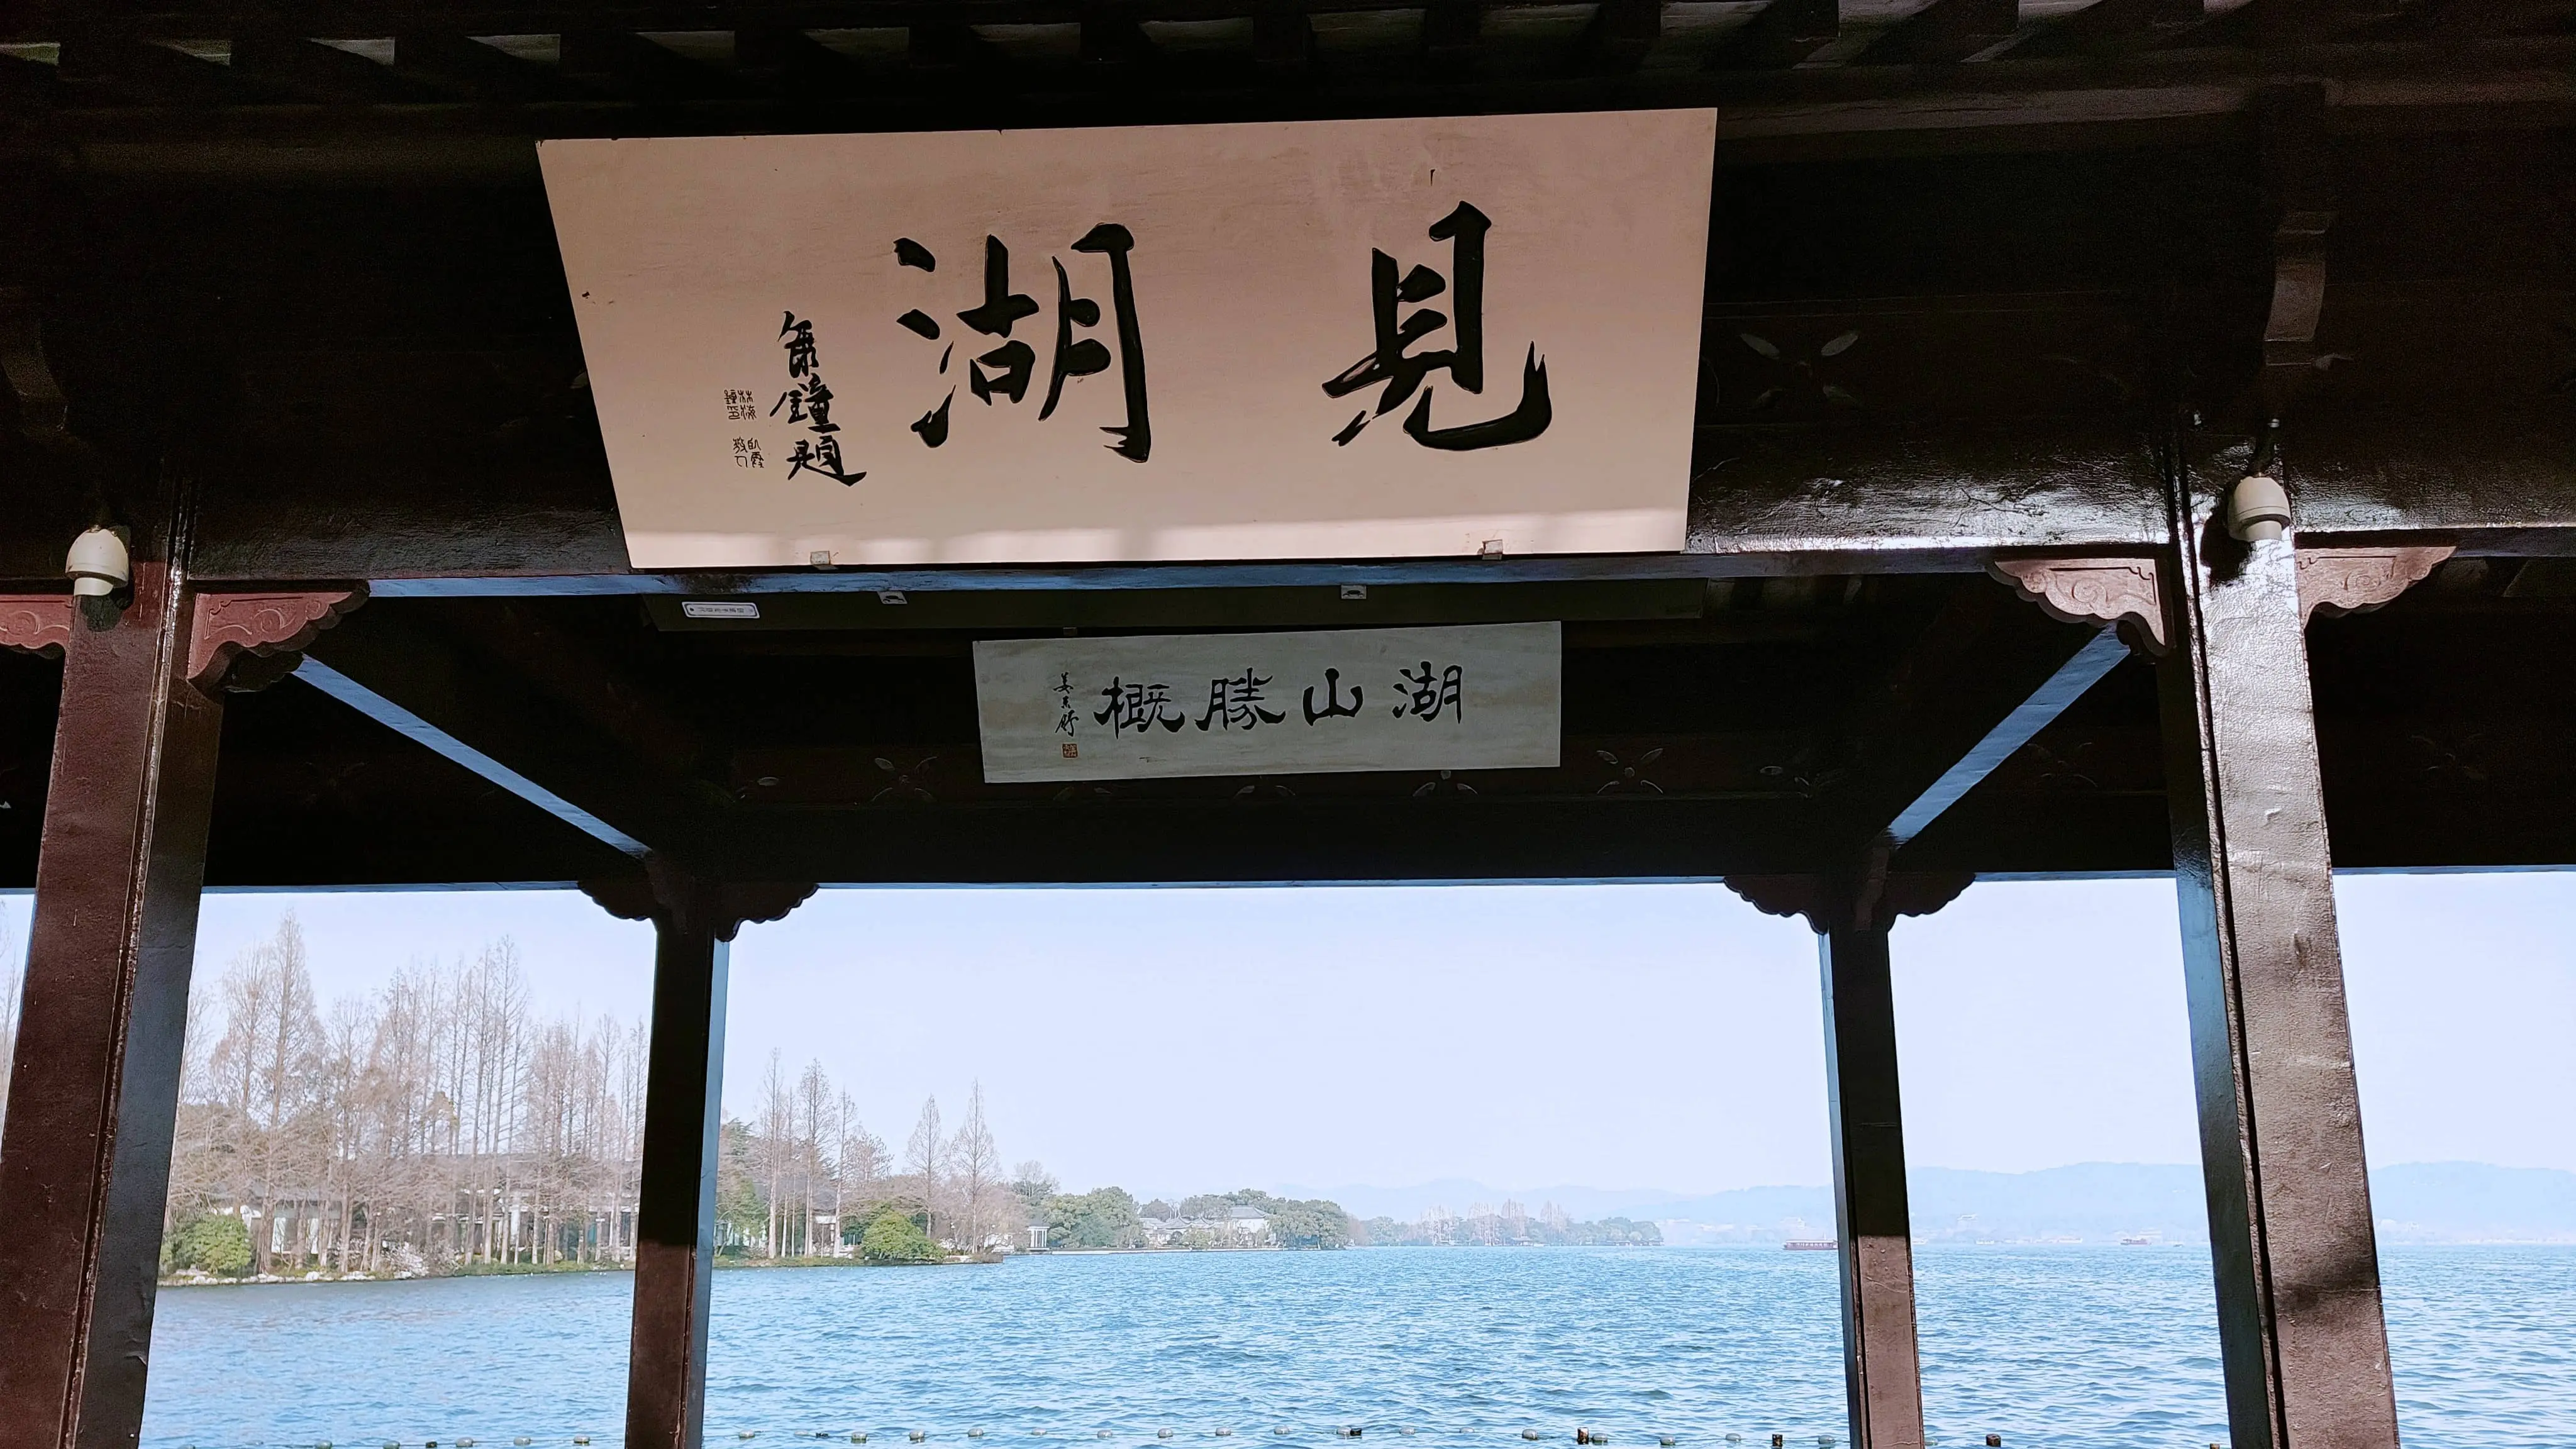 見湖
海鐘題
湖山勝概
姜東舒